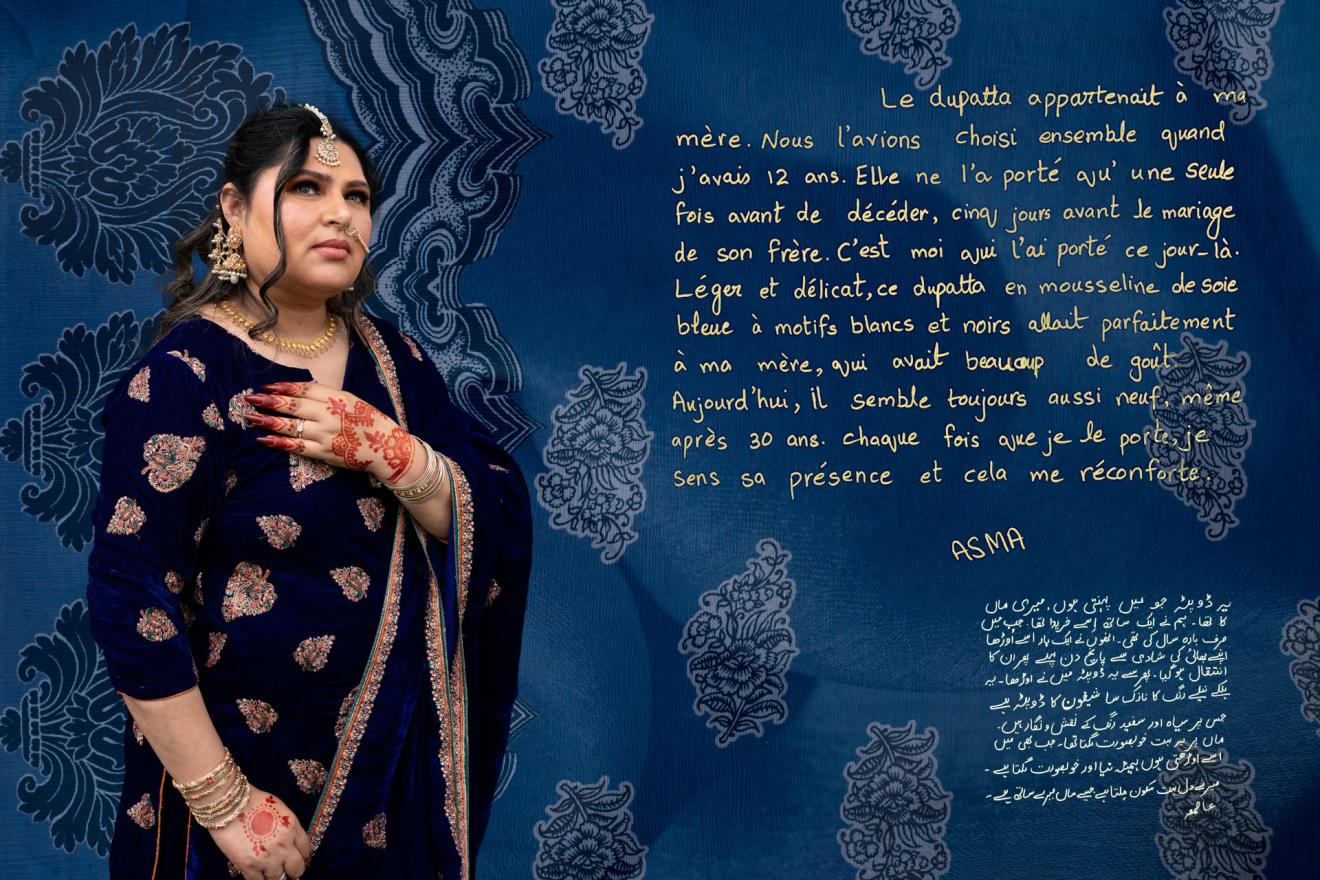 Le dupatta appartenait à ma
mère. Nous l'avions choisi ensemble quand
j'avais 12 ans. Elle ne l'a porté qu'une seule
fois avant de décéder, cinq jours avant le mariage
de son frère. C'est moi qui l'ai porté ce jour-là.
Léger et délicat, ce dupatta en mousseline de soie
bleue à motifs blancs et noirs allait parfaitement
à ma mère, qui avait beaucoup de goût.
Aujourd'hui, il semble toujours aussi neuf, même
après 30 ans. chaque fois que je le porte, je
sens sa présence et cela me réconforte.
ASMA
یہ ڈوپٹہ جو میں پہنتی ہوں، میری ماں
کا تھا۔ ہم نے ایک ساتھ اسے خریدا تھا۔ جب میں
صرف بارہ سال کی تھی۔ انھوں نے ایک بار اسے اوڑھا
اپنے بھائی کی شادی سے پانچ دن پہلے پھر ان کا
انتقال ہو گیا۔ پھر سے یہ ڈوپٹہ میں نے اوڑھا۔ یہ
ہلکے نیلے رنگ کا نازک سا شیفون کا ڈوپٹہ ہے
جس پر سیاہ اور سفید رنگ کے نقش و نگار ہیں۔
ماں پر یہ بہت خوبصورت لگتا تھا۔ جب بھی میں
اسے اوڑھتی ہوں ہمیشہ نیا اور خوبصورت لگتا ہے۔
میرے دل بہت سکون ملتا ہے جیسے ماں میرے ساتھ ہے۔
عاصمہ